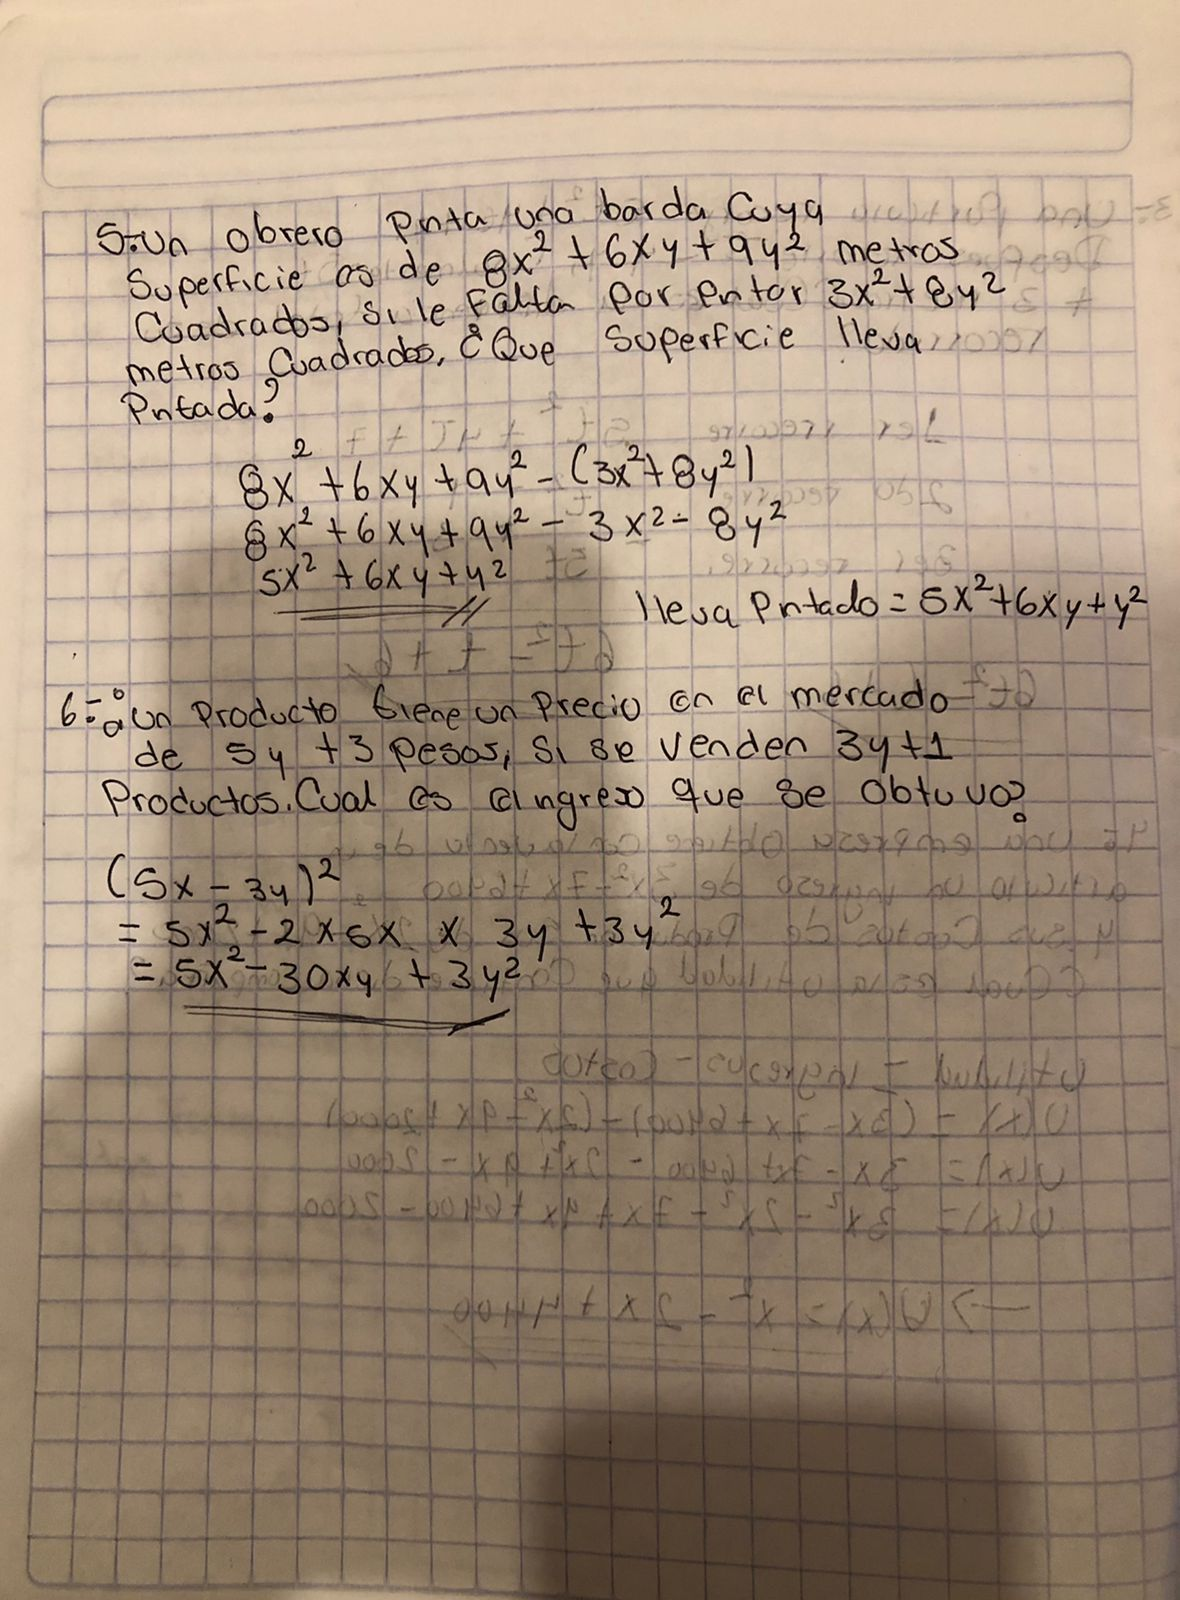 5.-Un obrero Pnta una barda Cuya
Superficie es de 8x² + 6xy + 9y² metros
Cuadrados, si le Falta Por Pntar 3x²+8y²
metros Cuadrados, ¿Que Superficie lleva
Pntada?
8x² + 6xy + 9y² - (3x²+8y²)
8x² + 6xy + 9y² - 3x² - 8y²
5x² + 6xy + y²
lleva Pntado = 5x²+6xy+y²
6.- ¿Un Producto tiene un Precio en el mercado
de 5y + 3 pesos, Si se venden 3y+1
Productos. Cual es el ingreso que se obtuvo?
(5x - 3y)²
= 5x² - 2 x 5x x 3y + 3y²
= 5x² - 30xy + 3y²